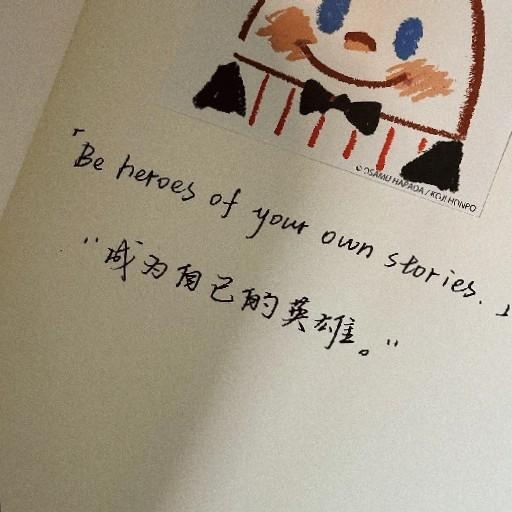 © OSAMU HARADA / KOJI HONPO
「Be heroes of your own stories.」
“成为自己的英雄。”